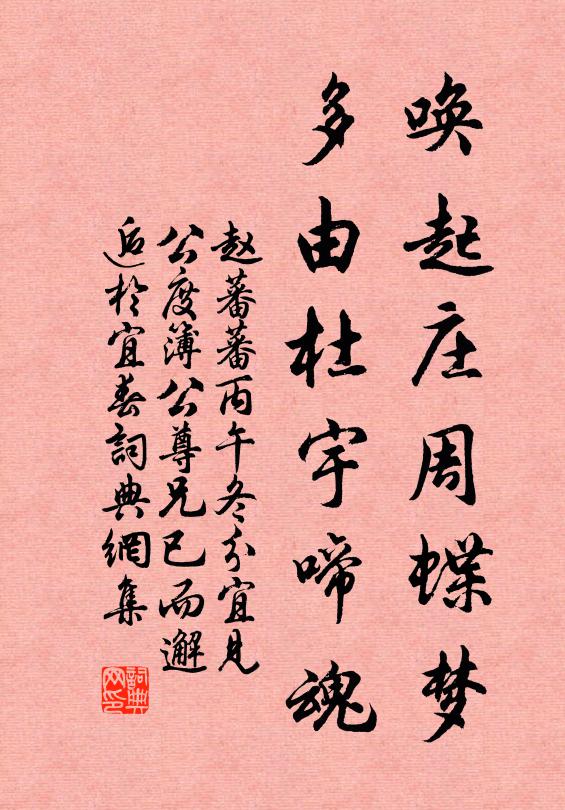 唤起庄周蝶梦
多由杜宇啼魂
赵蕃蕃丙午冬分宜见
公度簿公尊兄已而邂
逅於宜春詞典網集
詞典
网印